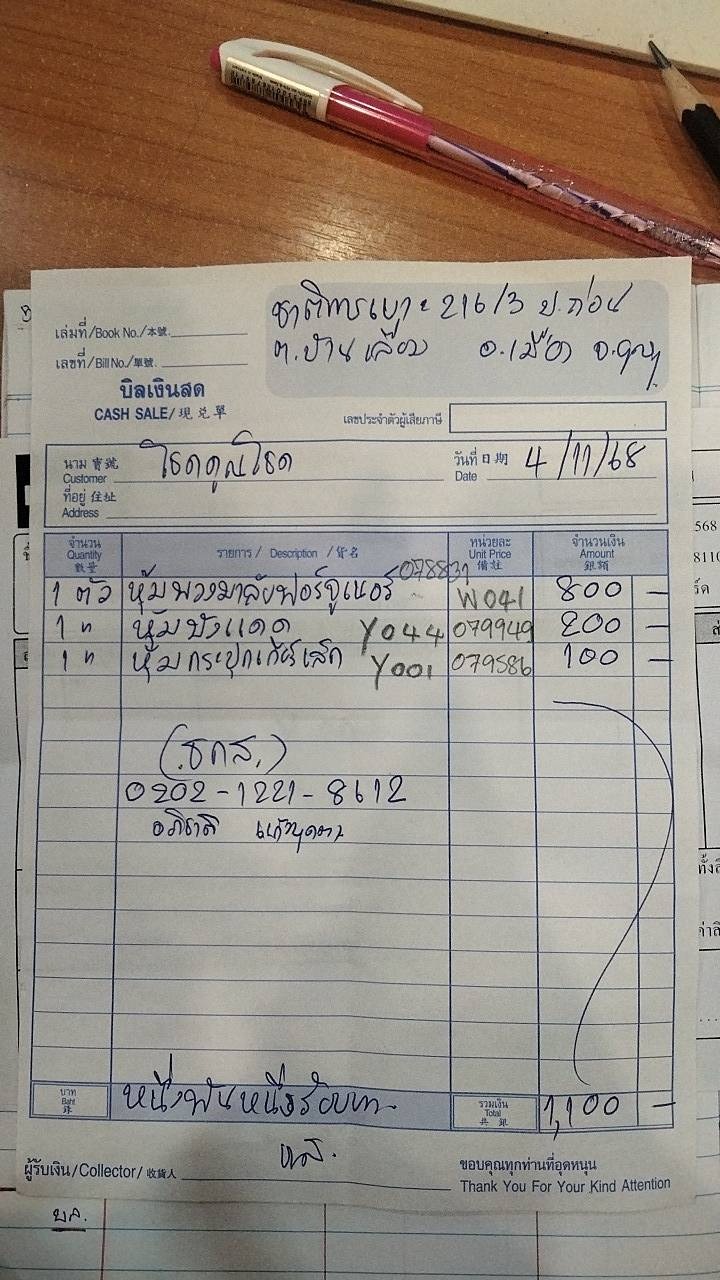 ชาติการเบาะ 216/3 ม.ก่อน
ต.บ้านเลื่อม อ.เมือง จ.อุดร
เล่มที่/Book No./本號.
เลขที่/Bill No./單號.
บิลเงินสด
CASH SALE/現兑單
เลขประจำตัวผู้เสียภาษี
นาม 寳號 Customer โชคคูณโชค วันที่ 日期 Date 4/11/68
ที่อยู่ 住址 Address
จำนวน Quantity 數量 รายการ / Description / 貨名 หน่วยละ Unit Price 備註 จำนวนเงิน Amount 銀額
078831
1 ตัว หุ้มพวงมาลัยฟอร์จูนเนอร์ W041 800 —
1 " หุ้มบังแดด Y044 079949 200 —
1 " หุ้มกระปุกเกียร์เล็ก Y001 079586 100 —
(ธกส.)
0202-1221-8612
บาท Baht 銖 หนึ่งพันหนึ่งร้อยบาท รวมเงิน Total 共銀 1,100 —
ผู้รับเงิน/Collector/收貨人
ขอบคุณทุกท่านที่อุดหนุน
Thank You For Your Kind Attention